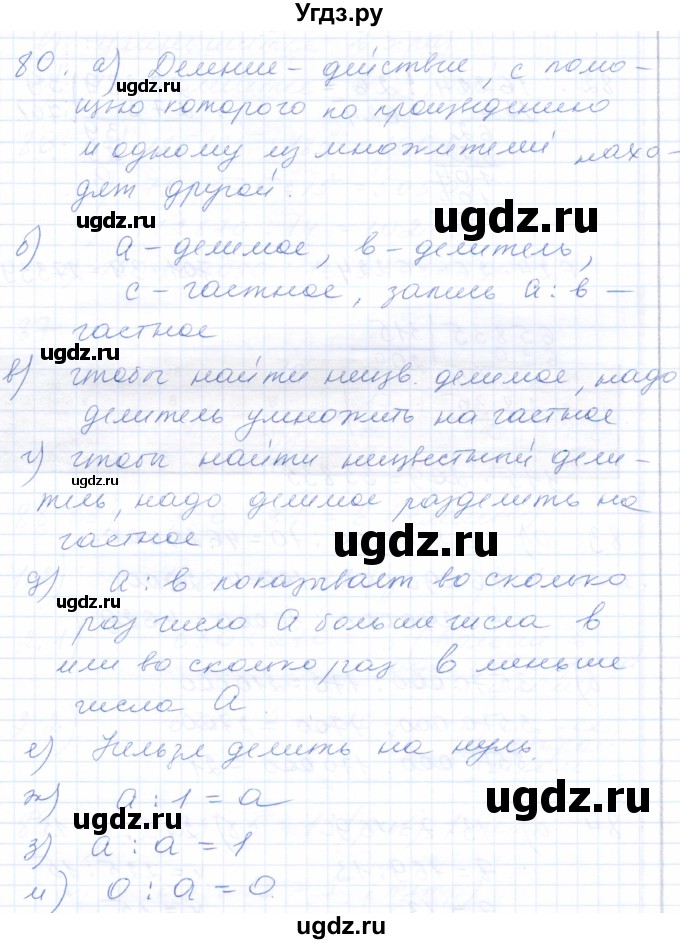 Угдз.ру
80. а) Деление – действие, с помо-
щью которого по произведению
и одному из множителей нахо-
дят другой.
ugdz.ru
ugdz.ru
ugdz.ru
б) а – делимое, в – делитель,
с – частное, запись а : в –
частное
ugdz.ru
в) чтобы найти неизв. делимое, надо
делитель умножить на частное
г) чтобы найти неизвестный дели-
ugdz.ru
тель, надо делимое разделить на
частное
ugdz.ru
д) а : в показывает во сколько
ugdz.ru
раз число а больше числа в
или во сколько раз в меньше
числа а.
е) Нельзя делить на нуль.
ж) а : 1 = а
ugdz.ru
ugdz.ru
з) а : а = 1
и) 0 : а = 0.
ugdz.ru